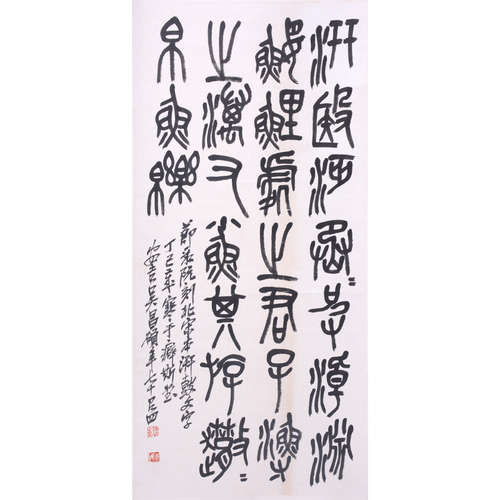 汧殹沔丞皮淖淵
鰋鯉處之君子漁
之澫又小魚其斿
帛魚
節臨阮刻北宋本鼓文字
丁巳寒于癖斯堂
安吉吴昌碩年七十四